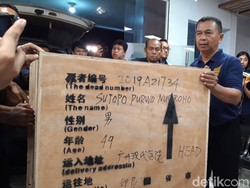 死者编号 2019A21734
(The dead number)
姓名 SUTOPO PURWO NUGROHO
(The name)
性别 男
(Gender)
年龄 49
(Age)
HEAD
运入地址
(delivery address)
运往地
detik